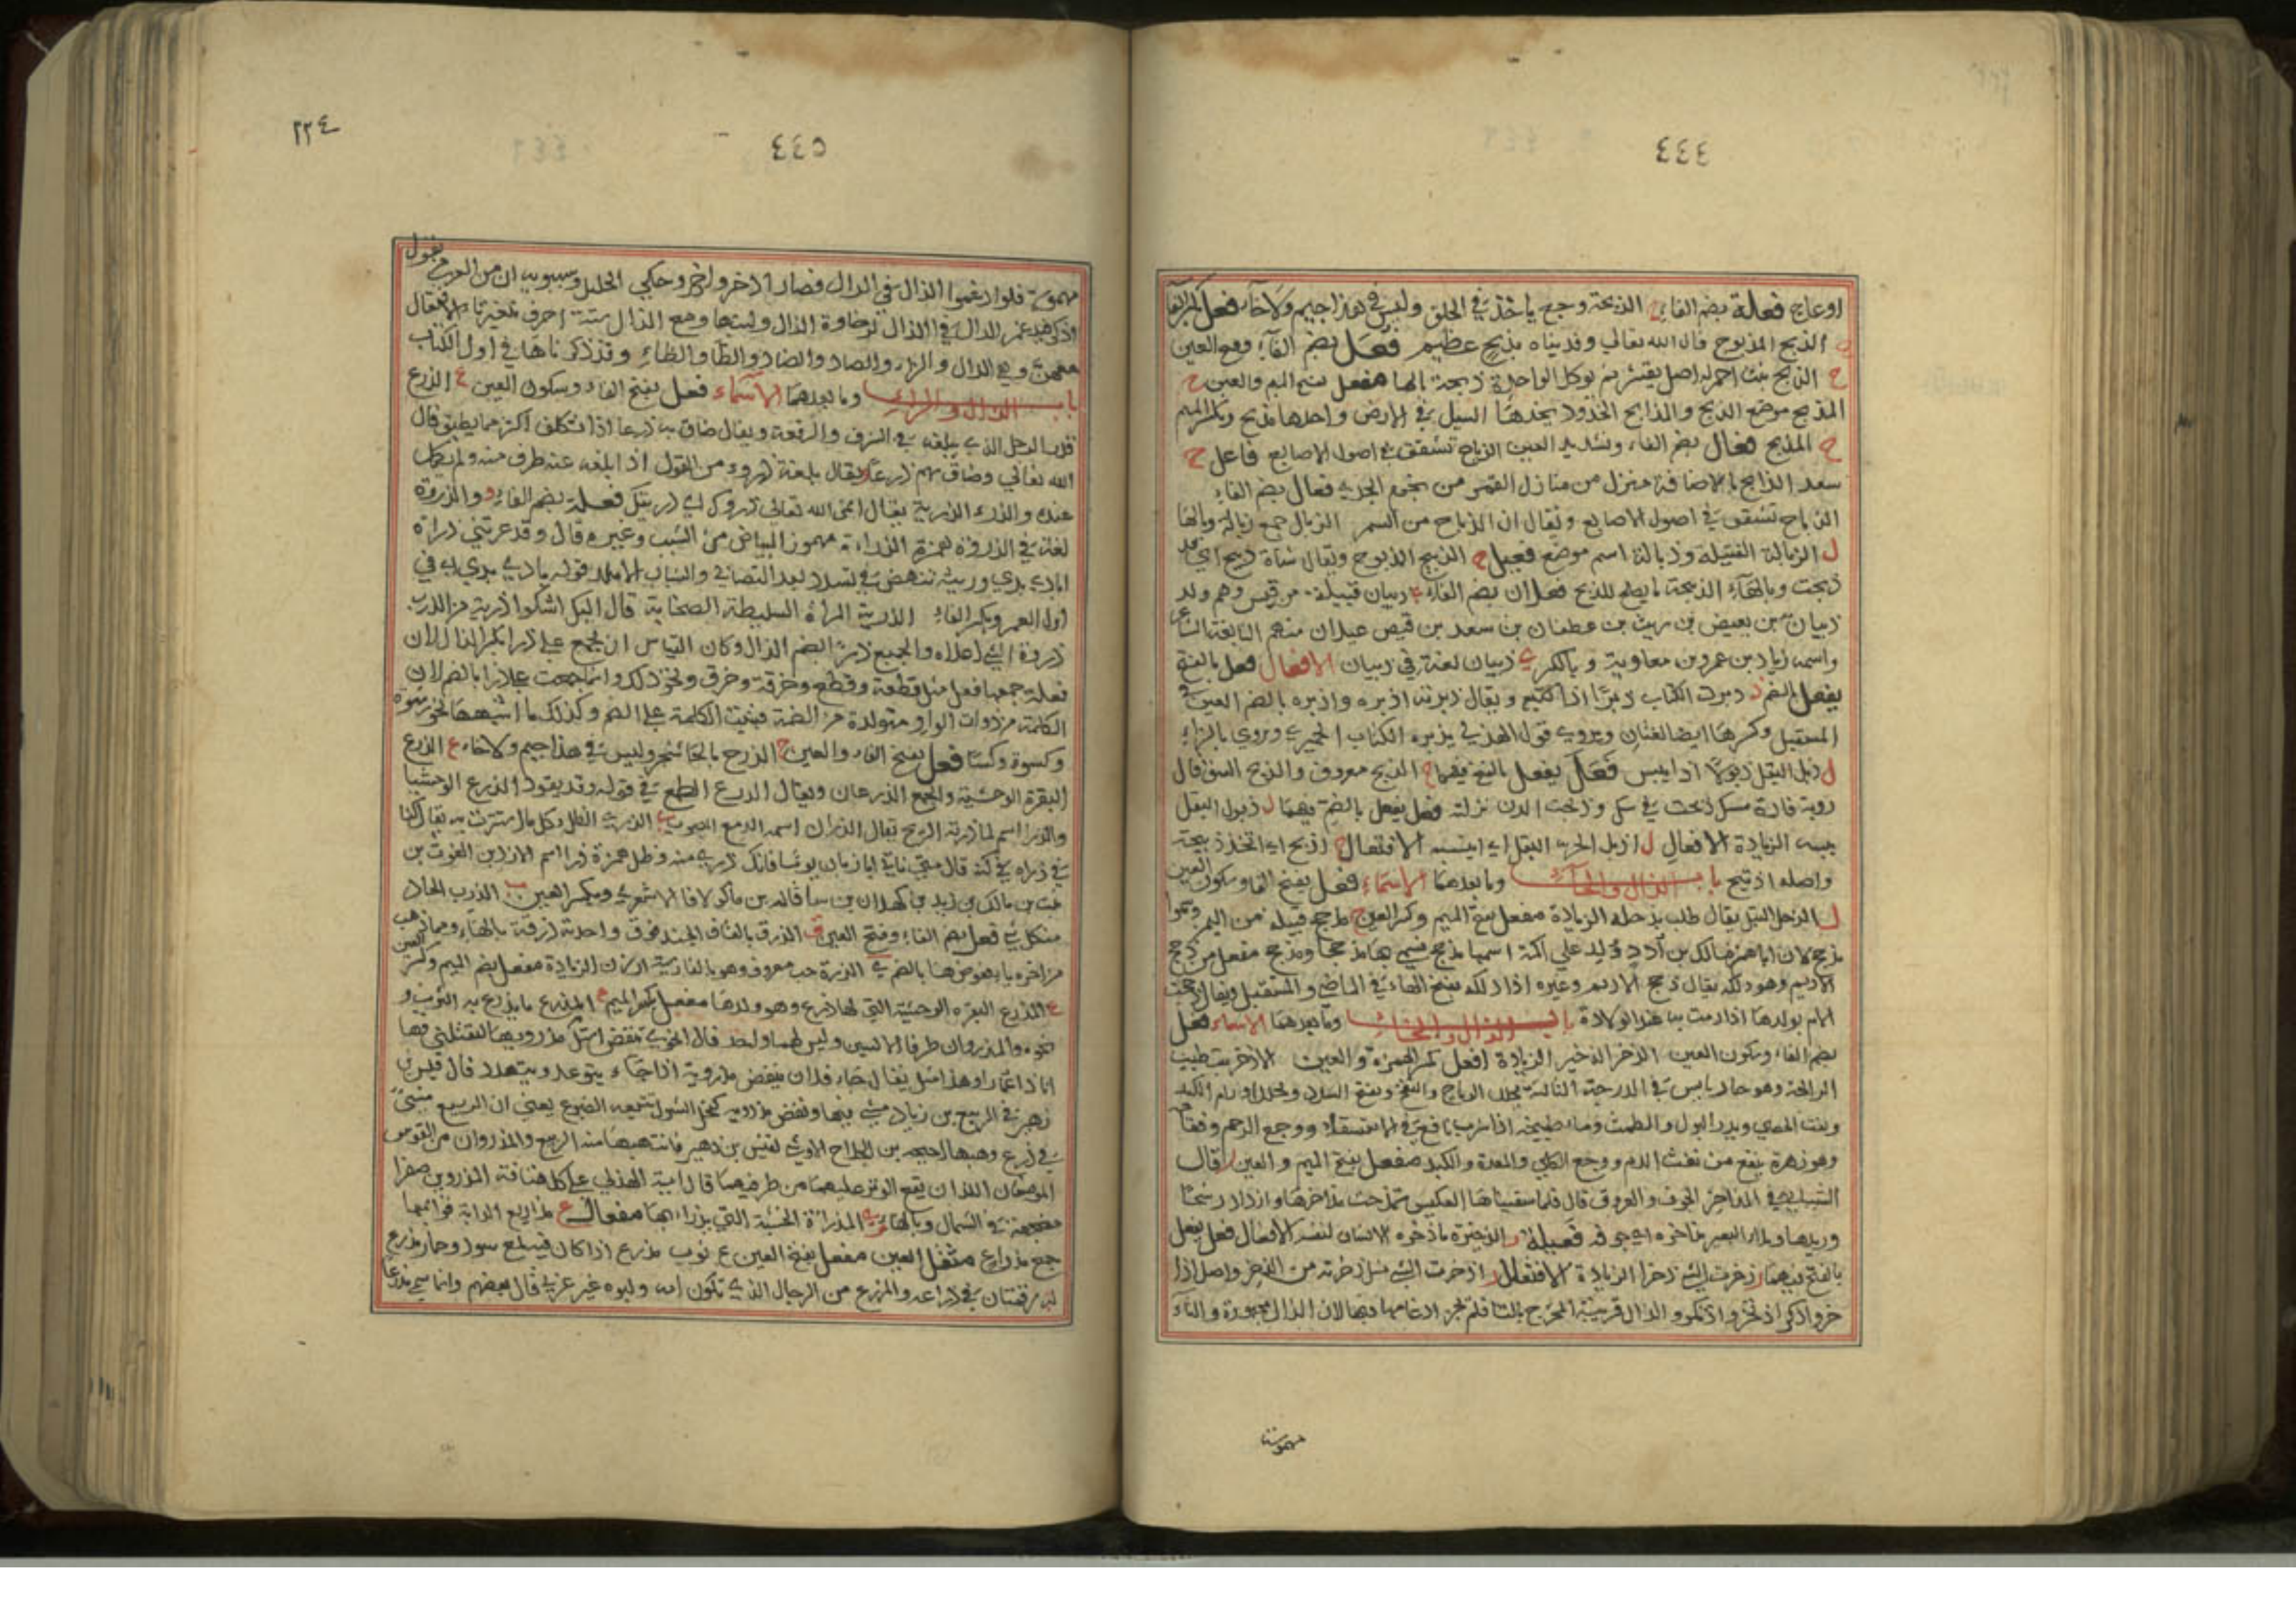 ٤٤٤
او عاج فعالة بضم الفاء الذبحة وجع ياخذ في الحلق وليس في هذا جيم ولا خاء فعل بكسر الفا
ح الذبح المذبوح قال الله تعالي وفديناه بذبح عظيم فعل بضم الفاء وفتح العين
ح الذبح نبت احمر له اصل يقشر ثم يوكل الواحدة ذبحة بالها مفعل بفتح الميم والعين ح
المذبح موضع الذبح والمذابح الخدود يخدها السيل في الارض واحدها مذبح وبكسر الميم
ح المذبح فعال بضم الفاء وتشديد العين الذباح تشقق في اصول الاصابع فاعل ح
سعد الذابح بالاضافة منزل من منازل القمر من نجوم الجدي فعال بضم الفاء
الذباح تشقق في اصول الاصابع ويقال ان الذباح من السمر الذبال جمع ذبالة وبالها
ل الذبالة الفتيلة وذبالة اسم موضع فعيل ح الذبيح المذبوح ويقال شاة ذبيح اي قد
ذبحت وبالهاء الذبيحة ما يصلح للذبح فعلان بضم الفاء ذبيان قبيلة من قيس وهم ولد
ذبيان بن بغيض بن ريث بن غطفان بن سعد بن قيس عيلان منهم النابغة الشاعر
واسمه زياد بن عمرو بن معاوية وبالكسر ي ذبيان لغة في ذبيان الافعال فعل بالفتح
يفعل بالضم ر ذبرت الكتاب ذبرا اذا كتبته ويقال ذبرته اذبره واذبره بالضم العين في
المستقبل وكسرها ايضا لغتان ويروي قول الهذلي يذبره الكتاب الحميري ويروي بالزاء
ل ذبل البقل ذبولا اذا يبس فعل يفعل بالفتح فيهما ح الذبح معروف والذبح الشق قال
روبة فارة مسك ذبحت في سك وذبحت الدن بزلته فعل يفعل بالضم فيهما ل ذبول البقل
يبسه الزيادة الافعال ل اذبل الحر البقل اي ايبسه الافتعال ح اذبح اي اتخذ ذبيحة
واصله اذتبح باب الذال والحاء وما بعدهما الاسماء فعل بفتح الفا وسكون العين
ل الذحل التبل يقال طلب بذحله الزيادة مفعل بفتح الميم وكسر العين ج مذحج قبيلة من اليمن وسموا
مذحج لان اباهم مالك بن أدد ولد علي اكمة اسمها مذحج فسمي بها مذحجا ومذحج مفعل من ذحج
الاديم وهو دلكه يقال ذحج الاديم وغيره اذا دلكه بفتح الحاء في الماضي والمستقبل ويقال ذحجت
الام بولدها اذا رمت به عند الولادة باب الذال والخاء وما بعدهما الاسماء فعل
بضم الفاء وسكون العين الذخر الذخير الزيادة افعل بكسر الهمزة والعين الاذخر نبت طيب
الرايحة وهو حار يابس في الدرجة الثالثة يحلل الرياح والنفخ ويفتح السدد ويحلل اورام الكبد
ويفتت الحصي ويدر البول والطمث
وهو زهرة ينفع من نفث الدم ووجع الكلي والمعدة والكبد مفعل بفتح الميم والعين ر قال
الشيباني المذاخر الجوف والعروق قال فلما سقيناها العكيس تمذحت مذاخرها وازداد رشحا
وريدها فعيلة ر الذخيرة ما ذخره الانسان لنفسه الافعال فعل يفعل
بالفتح فيهما ر ذخرت الشي ذخرا الزيادة الافتعال ر اذخرت الشي مثل ذخرته من الذخر واصل اذا
خر واذكر اذتخر واذتكر والذال قريبة المخرج بالتا فلم يجز ادغامها فيها لان الذال مجهورة والتاء
مهموسة
٢٢٤
٤٤٥
مهموسة فلو ادغموا الذال في الدال فصار ادخر وادكر وحكي الخليل وسيبويه ان من العرب من يقول
اذكر فيدغم الدال في الذال لرخاوة الذال ولينها ومع الذال ستة احرف تتغير تاء الافتعال
معهن وهي الدال والزاء والصاد والضاد والطا والظاء وقد ذكرناها في اول الكتاب
باب الذال والراء وما بعدهما الاسماء فعل بفتح الفاء وسكون العين ع الذرع
قدر الرجل الذي يبلغه في الشرف والرفعة ويقال ضاق به ذرعا اذا تكلف اكثر مما يطيق قال
الله تعالي وضاق بهم ذرعا ويقال بلغه ذروء من القول اذا بلغه عنه طرف منه ولم يكمل
عنده والذرء الذرية يقال انمي الله تعالي ذروك اي ذريتك فعلة بضم الفاء و والذروة
لغة في الذروة همزة الذراءة مهموز البياض من الشيب وغيره قال وقد عرتني ذراة
بادي بدي ورثية تنهض في تشدد بعد التصابي والشباب الاملد قوله بادي بدي اي في
اول العمر وبكسر الفاء الذربة المراة السليطة الصخابة قال اليك اشكوا ذربة من الذرب
ذروة الشي اعلاه والجميع ذرا بضم الذال وكان القياس ان يجمع علي ذرا بكسر الذال لان
فعلة جمعها فعل مثل قطعة وقطع وخرقة وخرق ونحو ذلك وانما جمعت علي ذرا بالضم لان
الكلمة من ذوات الواو متولدة من الضمة فبنيت الكلمة علي الضم وكذلك ما اشبهها نحو رشوة
وكسوة وكسا فعل بفتح الفاء والعين ح الذرح بالحا شجر وليس في هذا جيم ولا خاء ع الذرع
البقرة الوحشية والجمع الذرعان ويقال الذرع الطمع في قوله وقد يقود الذرع الوحشيا
والذرا اسم لما ذرته الريح يقال الذرا اسم الدمع المصبوب ي الذرى الظل وكل ما استترت به يقال كنا
في ذراه
بنت بن مالك بن زيد بن كهلان بن سبا وبكسر العين ب الذرب الحاد
من كل شي فعل بضم الفاء وفتح العين ق الذرق بالقاف الحندقوق واحدته ذرقة بالهاء ومما ذهب
من اخره ياء فعوض ها بالضم ي الذرة حب معروف وهو بالفارسية ارزن الزيادة مفعل بضم الميم وكسر العين
ع المذرع البقره الوحشية التي لها ذرع وهو ولدها مفعل بكسر الميم ع المذرع ما يذرع به الثوب و
نحوه والمذروان طرفا الاليتين وليس لهما واحد قال
انا ذا عمارا وهذا مثل يقال جاء فلان ينفض مذرويه اذا جاء يتوعد ويتهدد قال قيس بن
زهير في الربيع بن زياد
الموضعان اللذان يقع الوتر عليهما من طرفيها قال امية الهذلي علي كل هتافة المذروين صفرا
مضجعة في الشمال وبالهاء ي المذراة الخشبة التي يذرا بها مفعال ع مذاريع الدابة قوائمها
جمع مذراع مثقل العين مفعل بفتح العين ع ثوب مذرع اذا كان فيه لمع سود وحمار مذرع
له رقمتان في ذراعه والمذرع من الرجال الذي تكون امه وابوه غير عربي قال بعضهم وانما سمي مذرعا